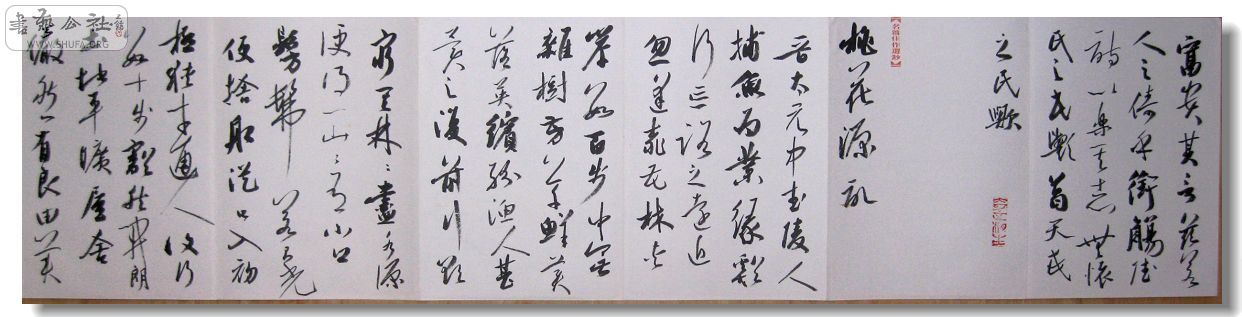 富貴其言茲若
人之儔乎銜觴賦
詩以樂其志無懷
氏之民歟葛天氏
之民歟
【名篇佳作選抄】
桃花源記
晋太元中武陵人
捕魚為業緣谿
行忘路之遠近
忽逢桃花林夾
岸數百步中無
雜樹芳草鮮美
落英繽紛漁人甚
異之復前行欲
窮其林〻盡水源
便得一山〻有小口
髣髴若有光
便捨船從口入初
極狹才通人復行
數十步豁然開朗
土地平曠屋舍
儼然有良田美
書藝公社
WWW.SHUFA.ORG